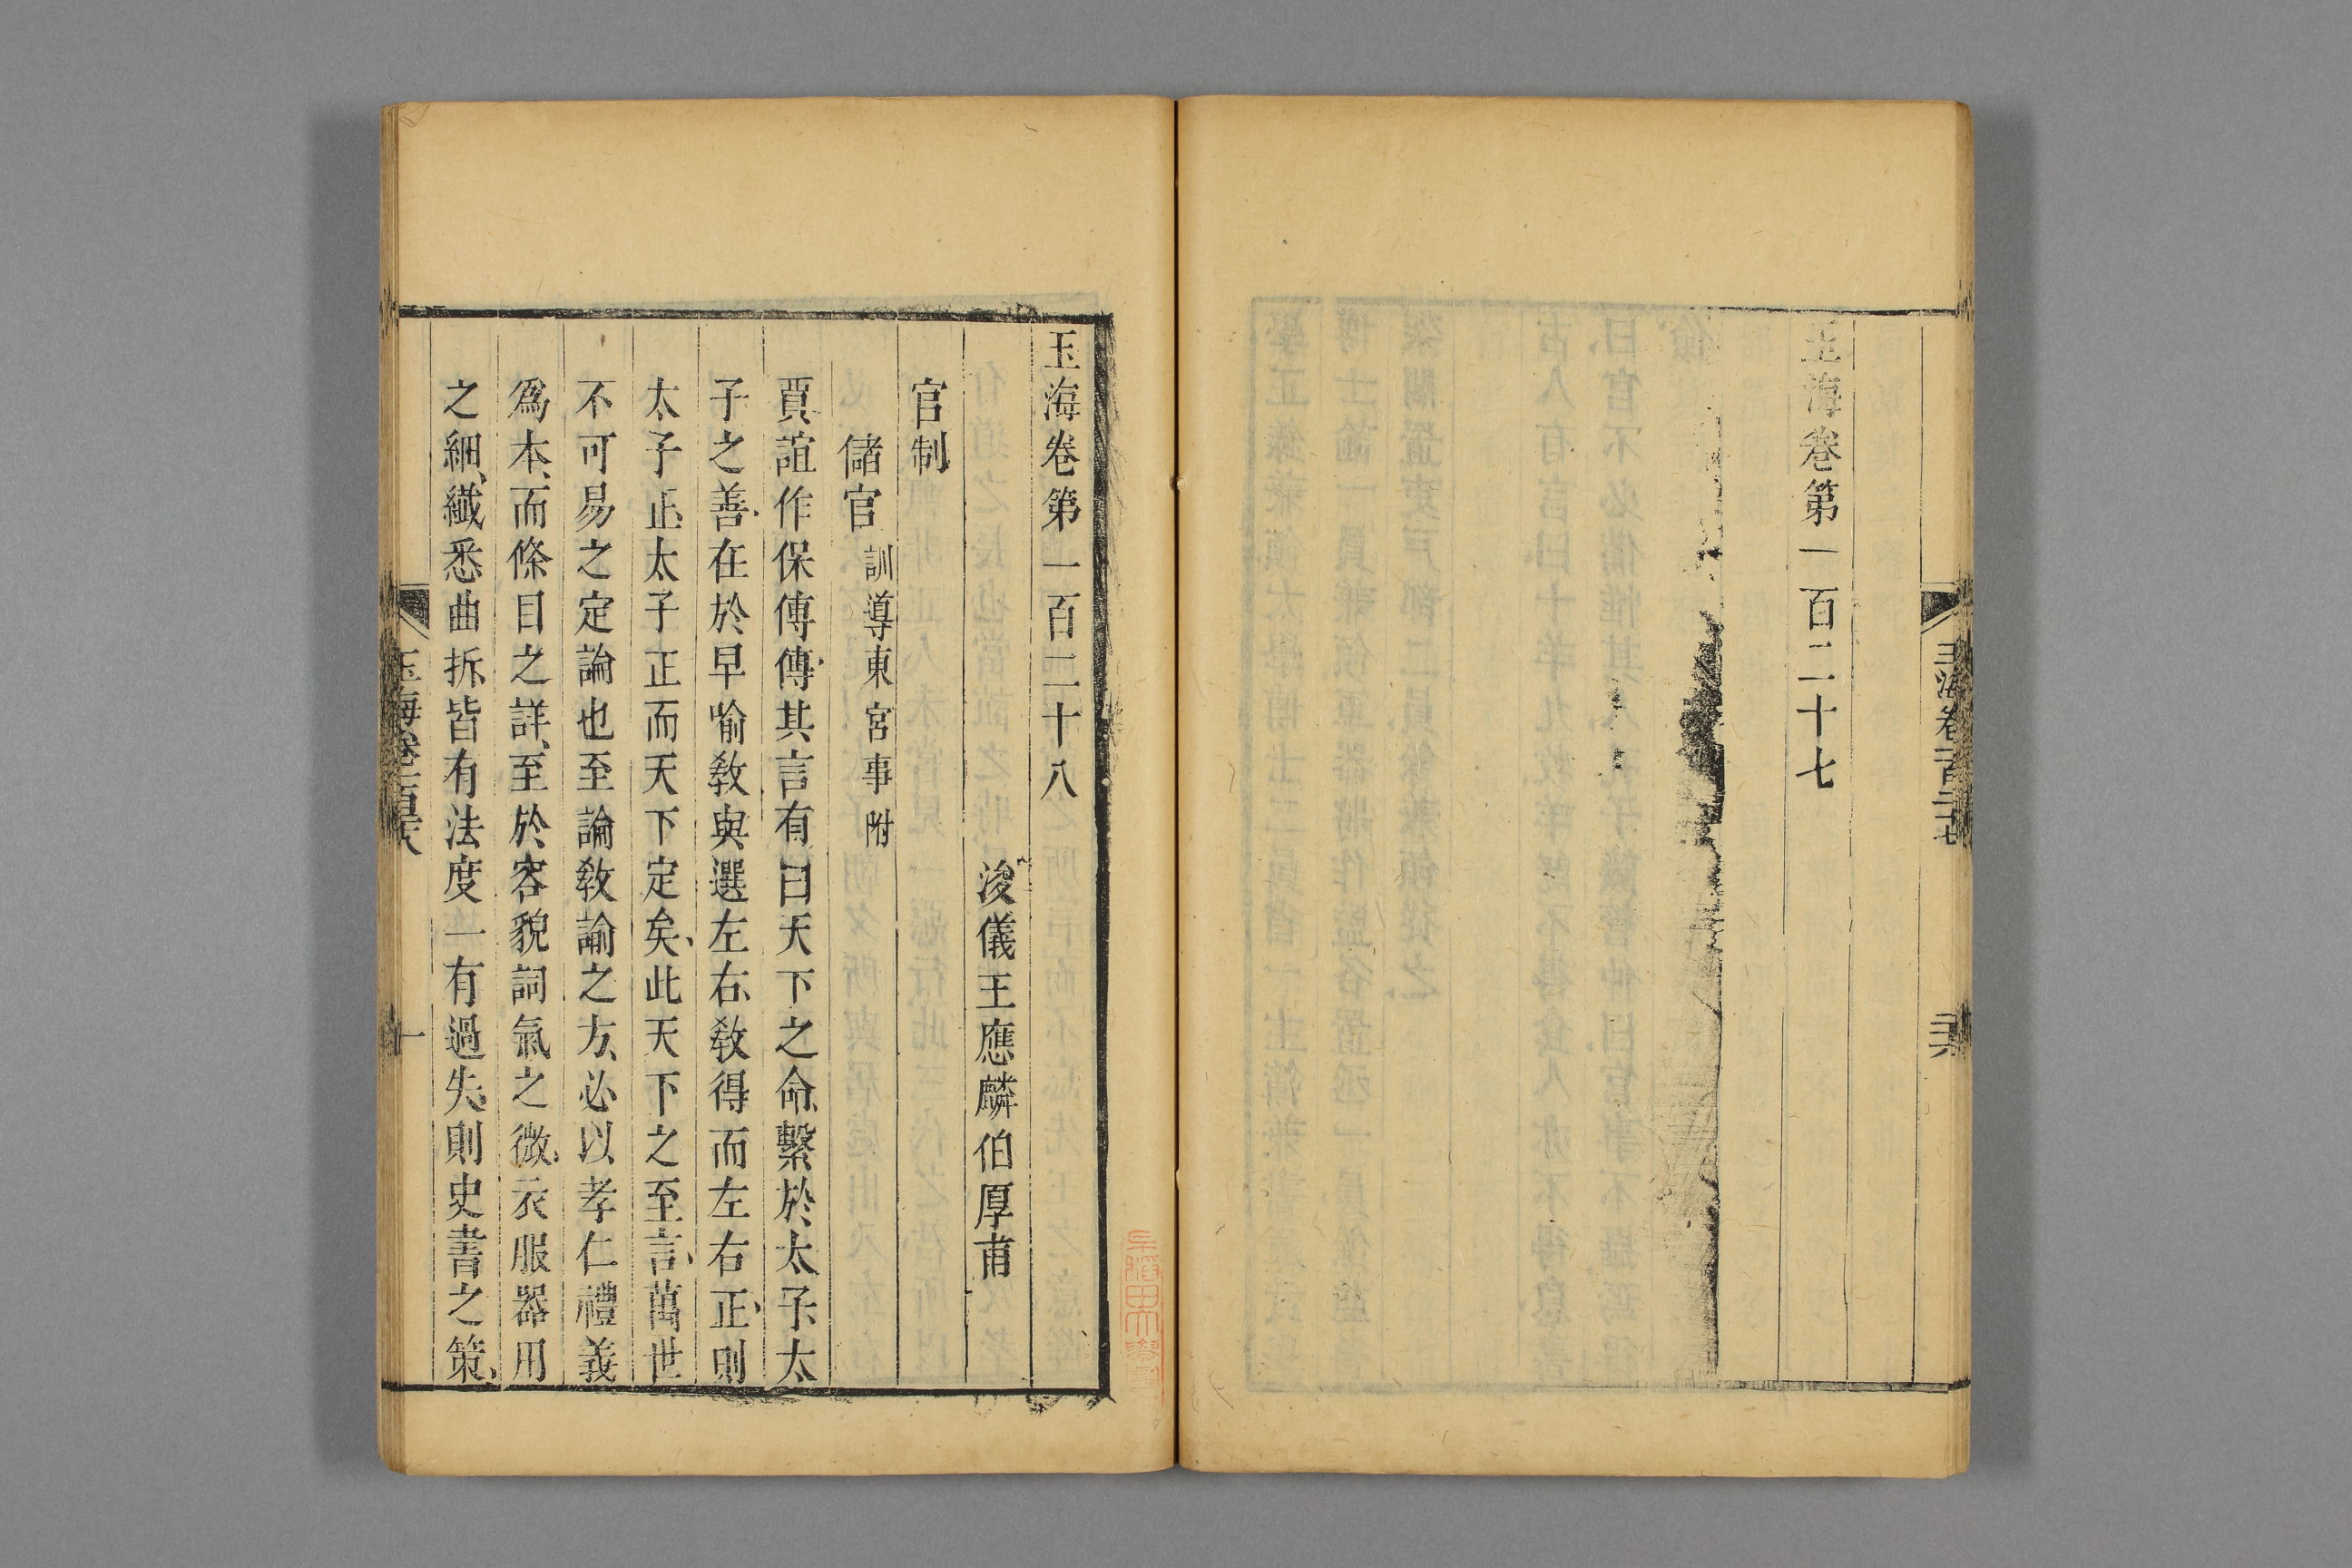 玉海卷第一百二十七
玉海卷第一百二十八
浚儀王應麟伯厚甫
官制
儲官 訓導東宮事附
賈誼作保傅傳其言有曰天下之命繫於太子太
子之善在於早喻教與選左右教得而左右正則
太子正太子正而天下定矣此天下之至言萬世
不可易之定論也至論教諭之方必以孝仁禮義
爲本而條目之詳至於容貌詞氣之微衣服器用
之細纖悉曲折皆有法度一有過失則史書之策